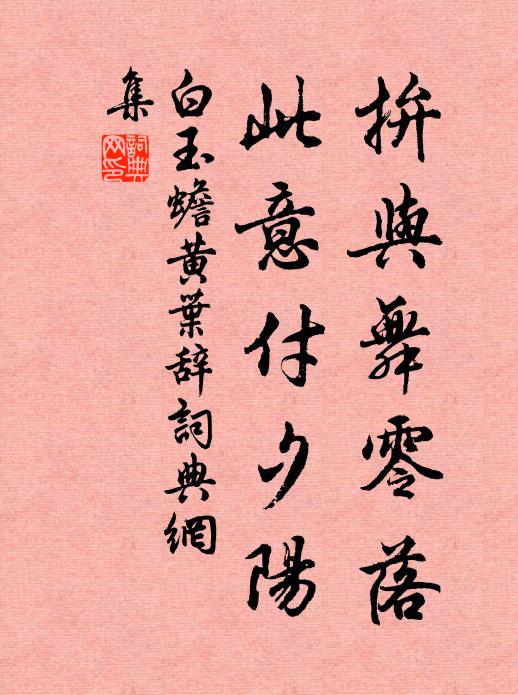 拚與舞零落
此意付夕陽
白玉蟾黃葉辞詞典網
集
詞典
网印